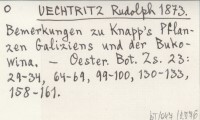 O UECHTRITZ Rudolph 1873.
Bemerkungen zu Knapp's Pflan-
zen Galiziens und der Buko-
wina. — Oester. Bot. Zs. 23:
29-34, 64-69, 99-100, 130-133,
158-161.